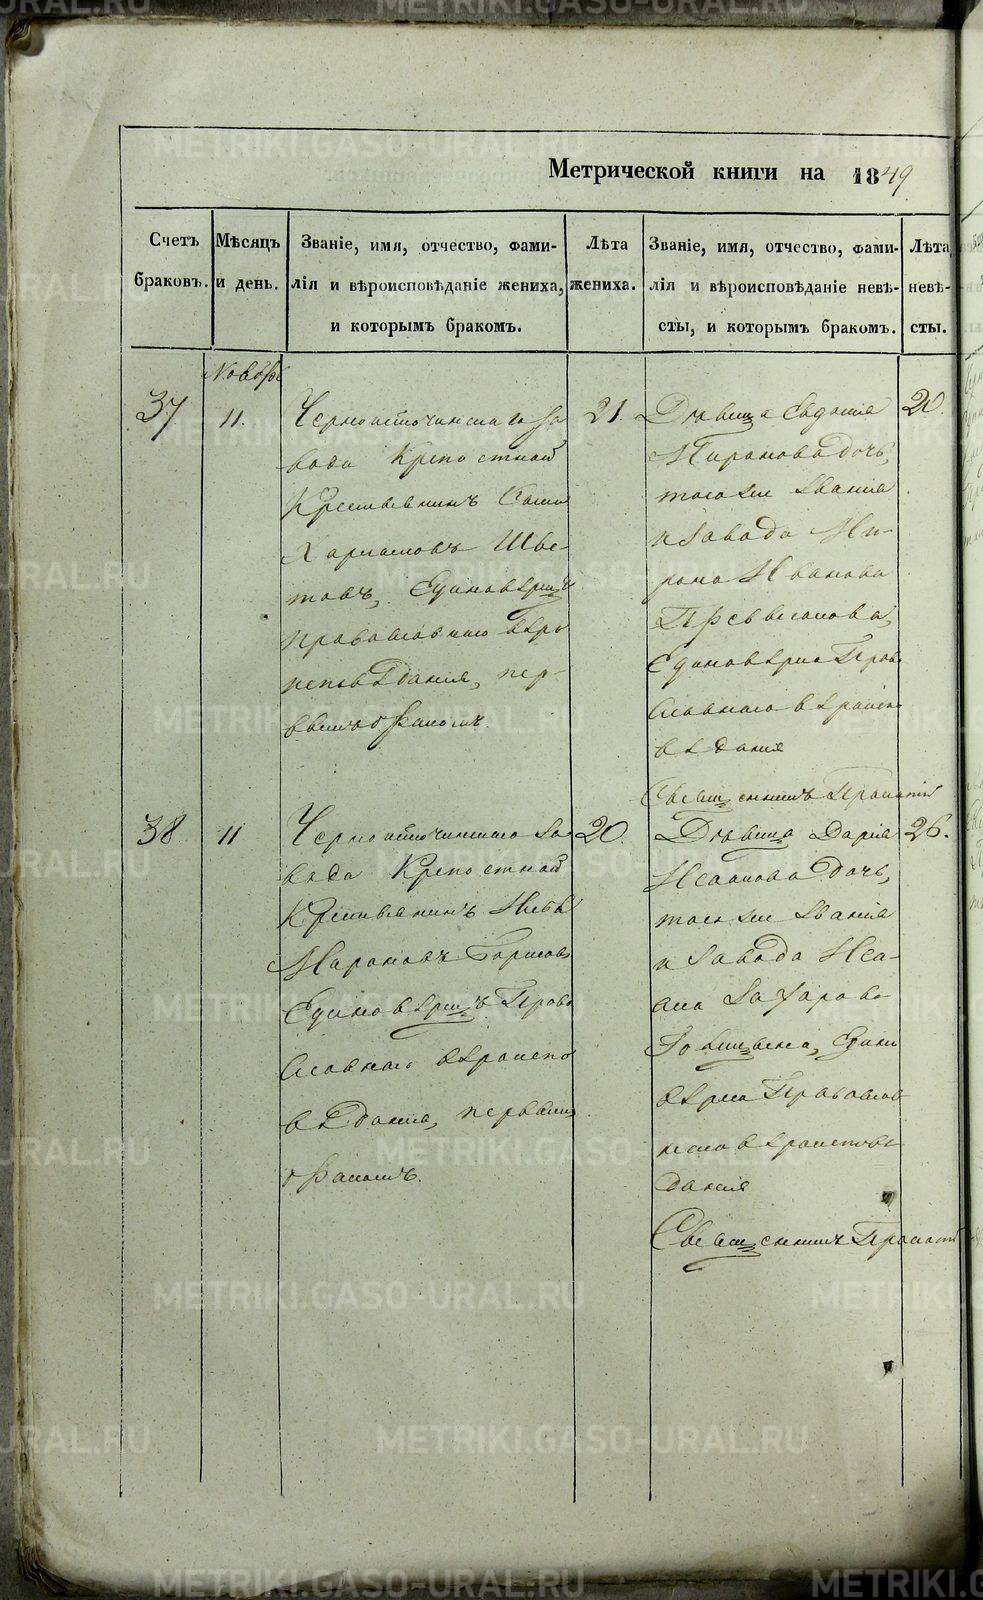 Метрической книги на 1849
Счетъ браковъ.
Мѣсяцъ и день.
Званіе, имя, отчество, фами-
лія и вѣроисповѣданіе жениха,
и которымъ бракомъ.
Лѣта жениха.
Званіе, имя, отчество, фами-
лія и вѣроисповѣданіе невѣ-
сты, и которымъ бракомъ.
Лѣта невѣ-
сты.
Ноябр
37.
11.
Черноисточинскаго за
вода Крепостной
Крестьянинъ
Харламовъ Шве-
товъ, Единоверецъ
православнаго веро
исповѣданія, пер-
вымъ бракомъ.
21.
Девица Евдокия
Миронова дочь,
того же звания
и завода Ми-
рона Иванова
Единоверка Право
славнаго вѣроиспо
вѣдания
Священникъ
20.
38.
11
Черноисточинскаго за
вода Крепостной
Крестьянинъ
Мароновъ Борисов
Единоверецъ Право
славнаго вѣроиспо
вѣдания, первымъ
бракомъ.
20.
Девица Дария
Исакова дочь,
того же звания
и завода Иса-
ака Захарова
Едино
верка Православ
наго вероисповѣ
дания
Священникъ
26.
METRIKI.GASO-URAL.RU